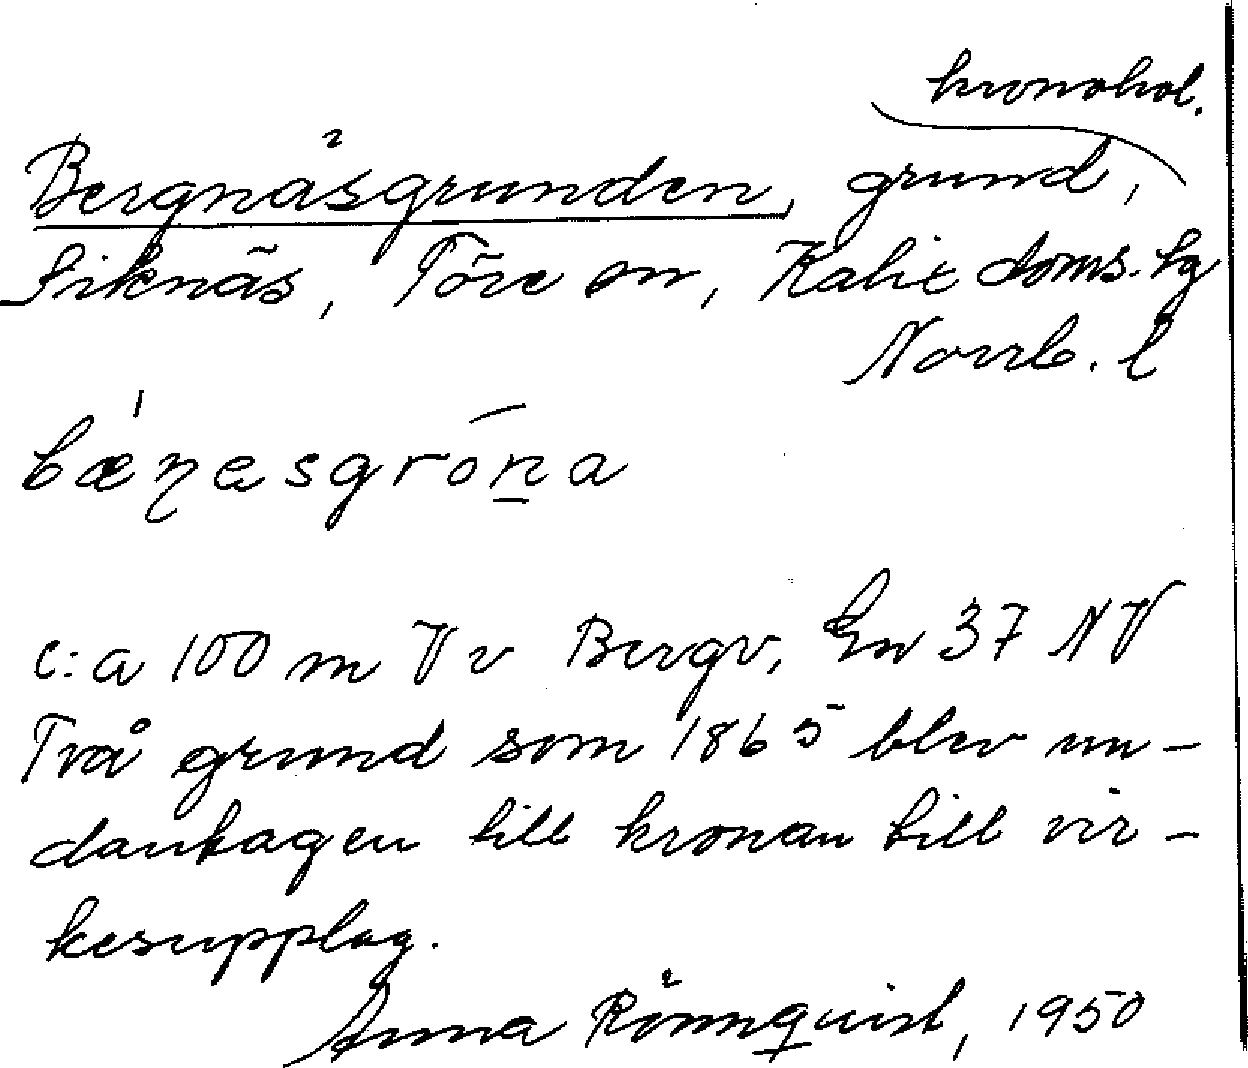 kronohol.
Bergnäsgrunden, grund,
Siknäs, Töre sn, Kalix doms. sg
Norrb. l
bæŋɐsgróna
c:a 100 m V v Bergv, En 37 NV
Två grund som 1865 blev un-
dantagen till kronan till vir-
kesupplag.
Anna Rönnquist, 1950